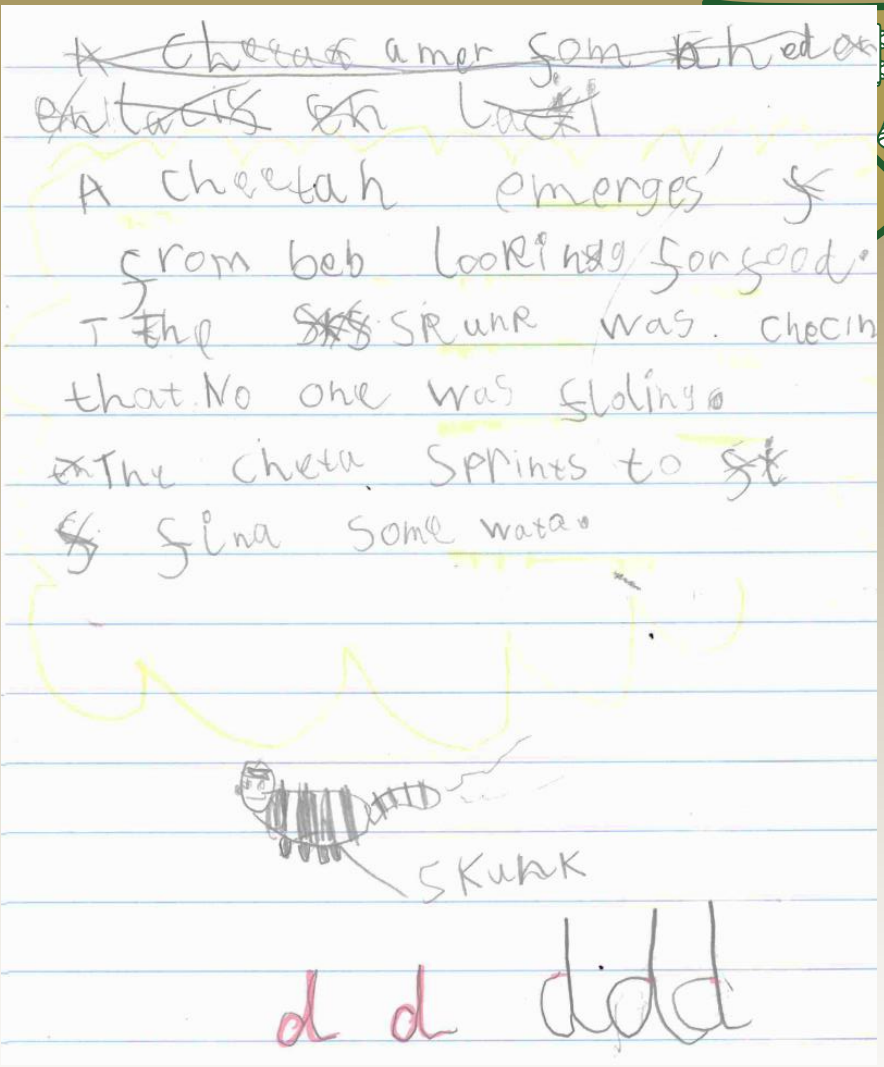 A cheetah emerges
from beb looking for food.
The skunk was. checin
that. No one was floling.
The cheta sprints to
find some wata.
skunk
d d d d d